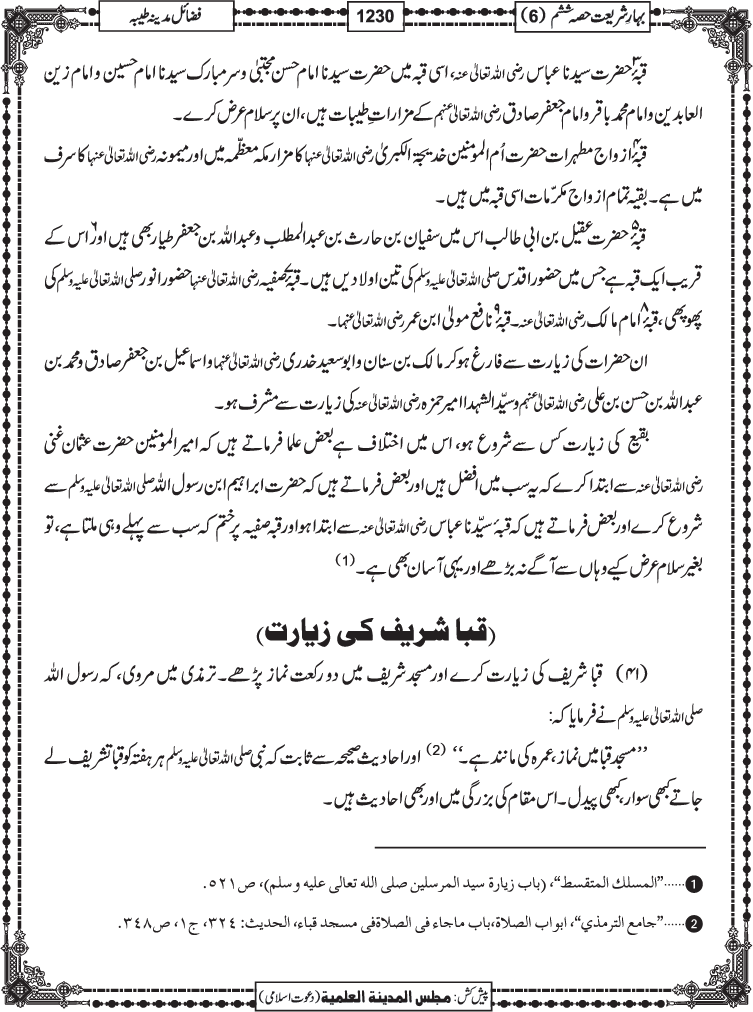 بہار شریعت حصہ ششم (6)
1230
فضائل مدینہ طیبہ
قبۂ۳ حضرت سیدنا عباس رضی اللہ تعالیٰ عنہ، اسی قبہ میں حضرت سیدنا امام حسن مجتبیٰ و سر مبارک سیدنا امام حسین و امام زین
العابدین و امام محمد باقر و امام جعفر صادق رضی اللہ تعالیٰ عنہم کے مزاراتِ طیبات ہیں، ان پر سلام عرض کرے۔
قبۂ۴ ازواج مطہرات حضرت اُم المومنین خدیجۃ الکبریٰ رضی اللہ تعالیٰ عنہا کا مزار مکہ معظّمہ میں اور میمونہ رضی اللہ تعالیٰ عنہا کا سرف
میں ہے۔ بقیہ تمام ازواج مکرّمات اسی قبہ میں ہیں۔
قبۂ۵ حضرت عقیل بن ابی طالب اس میں سفیان بن حارث بن عبدالمطلب و عبداللہ بن جعفر طیار بھی ہیں اور۶ اس کے
قریب ایک قبہ ہے جس میں حضور اقدس صلی اللہ تعالیٰ علیہ وسلم کی تین اولادیں ہیں۔ قبۂ۷ صفیہ رضی اللہ تعالیٰ عنہا حضور انور صلی اللہ تعالیٰ علیہ وسلم کی
پھوپھی، قبۂ۸ امام مالک رضی اللہ تعالیٰ عنہ۔ قبۂ۹ نافع مولیٰ ابن عمر رضی اللہ تعالیٰ عنہما۔
ان حضرات کی زیارت سے فارغ ہوکر مالک بن سنان و ابو سعید خدری رضی اللہ تعالیٰ عنہما و اسماعیل بن جعفر صادق و محمد بن
عبداللہ بن حسن بن علی رضی اللہ تعالیٰ عنہم و سیّد الشہدا امیر حمزہ رضی اللہ تعالیٰ عنہ کی زیارت سے مشرف ہو۔
بقیع کی زیارت کس سے شروع ہو، اس میں اختلاف ہے بعض علما فرماتے ہیں کہ امیر المومنین حضرت عثمان غنی
رضی اللہ تعالیٰ عنہ سے ابتدا کرے کہ یہ سب میں افضل ہیں اور بعض فرماتے ہیں کہ حضرت ابراہیم ابن رسول اللہ صلی اللہ تعالیٰ علیہ وسلم سے
شروع کرے اور بعض فرماتے ہیں کہ قبۂ سیّدنا عباس رضی اللہ تعالیٰ عنہ سے ابتدا ہو اور قبہ صفیہ پر ختم کہ سب سے پہلے وہی ملتا ہے، تو
بغیر سلام عرض کیے وہاں سے آگے نہ بڑھے اور یہی آسان بھی ہے۔ (1)
(قبا شریف کی زیارت)
(۴۱) قبا شریف کی زیارت کرے اور مسجد شریف میں دو رکعت نماز پڑھے۔ ترمذی میں مروی، کہ رسول اللہ
صلی اللہ تعالیٰ علیہ وسلم نے فرمایا کہ:
’’مسجد قبا میں نماز، عمرہ کی مانند ہے۔‘‘ (2) اور احادیث صحیحہ سے ثابت کہ نبی صلی اللہ تعالیٰ علیہ وسلم ہر ہفتہ کو قبا تشریف لے
جاتے کبھی سوار، کبھی پیدل۔ اس مقام کی بزرگی میں اور بھی احادیث ہیں۔
1......"المسلك المتقسط"، (باب زيارة سيد المرسلين صلى الله تعالى عليه وسلم)، ص٥٢١.
2......"جامع الترمذي"، ابواب الصلاة، باب ماجاء فى الصلاة فى مسجد قباء، الحديث: ٣٢٤، ج١، ص٣٤٨.
پیش کش: مجلس المدينة العلمية (دعوت اسلامی)